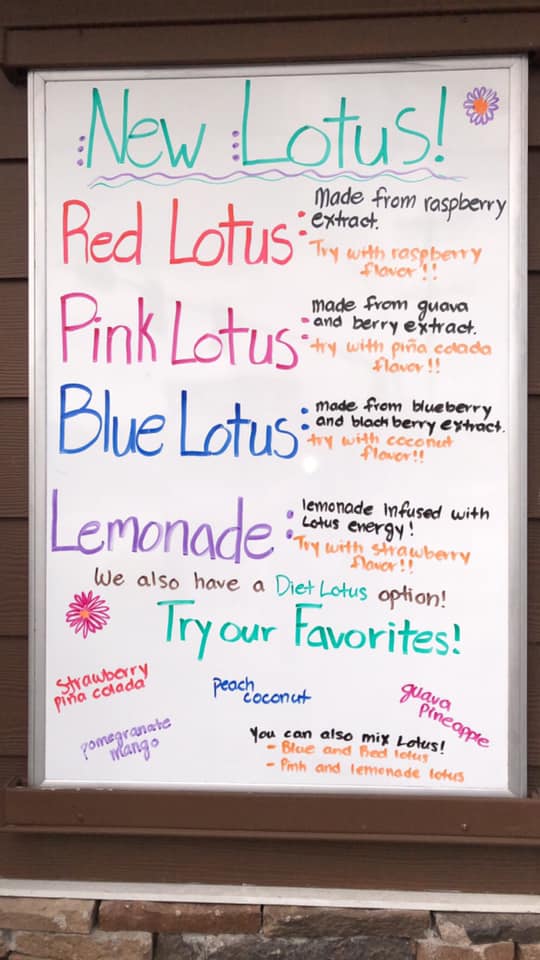 New Lotus!
Red Lotus:
Made from raspberry
extract.
Try with raspberry
flavor!!
Pink Lotus:
made from guava
and berry extract.
try with piña colada
flavor!!
Blue Lotus:
made from blueberry
and blackberry extract.
try with coconut
flavor!!
Lemonade:
lemonade Infused with
Lotus energy!
Try with strawberry
flavor!!
We also have a Diet Lotus option!
Try our Favorites!
Strawberry
piña colada
peach
coconut
guava
pineapple
pomegranate
mango
You can also mix Lotus!
- Blue and Red lotus
- Pink and lemonade lotus